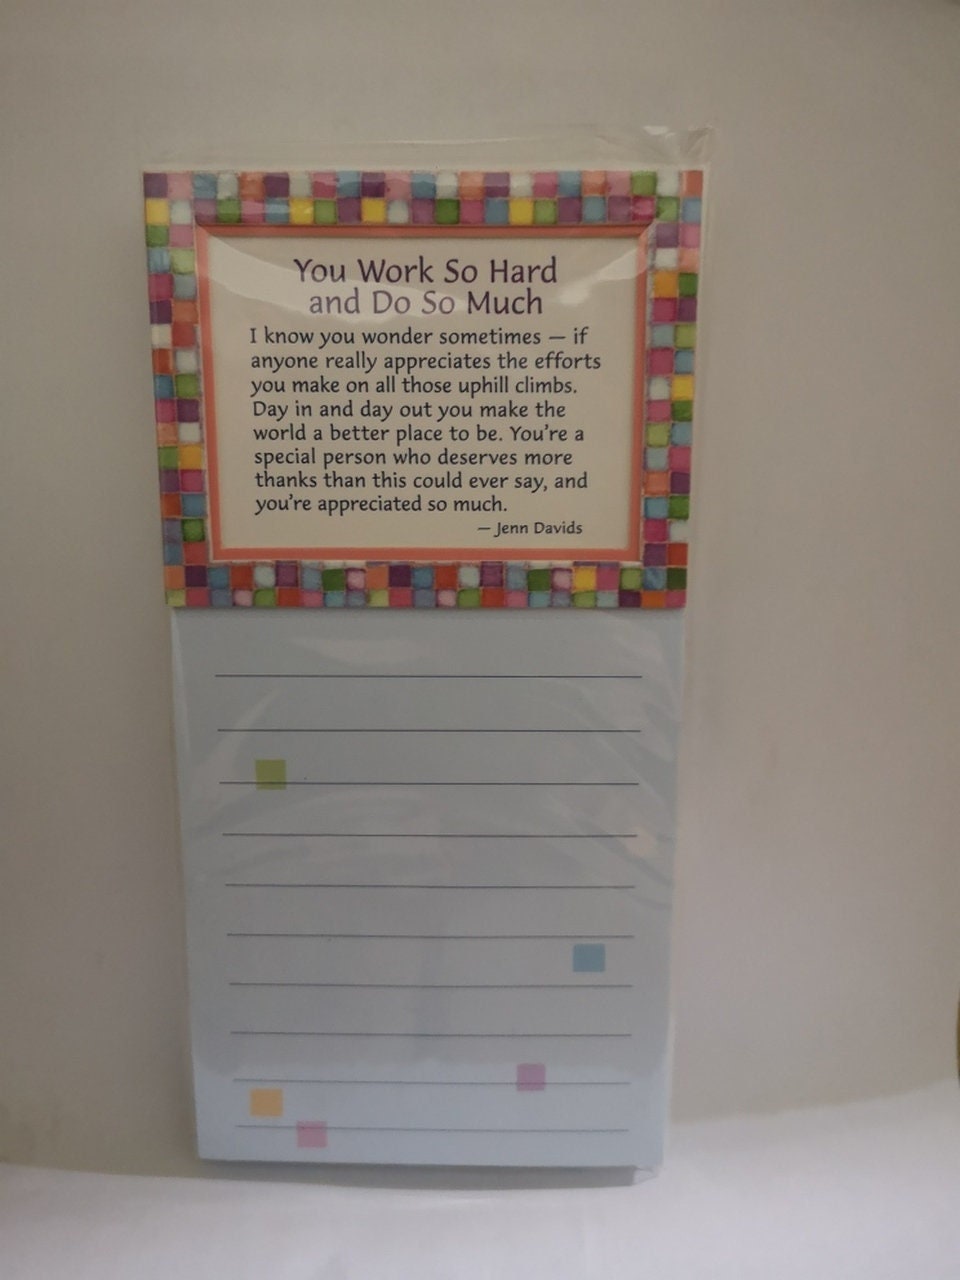 You Work So Hard
and Do So Much
I know you wonder sometimes — if
anyone really appreciates the efforts
you make on all those uphill climbs.
Day in and day out you make the
world a better place to be. You're a
special person who deserves more
thanks than this could ever say, and
you're appreciated so much.
— Jenn Davids